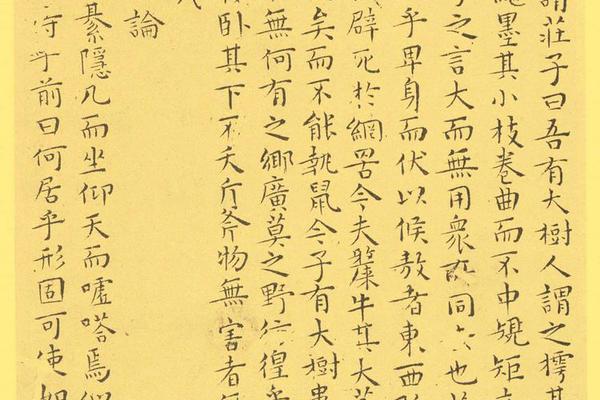 謂莊子曰吾有大樹人謂之樗其
繩墨其小枝卷曲而不中規矩
子之言大而無用衆所同去也
乎卑身而伏以候敖者東西
辟死於網罟今夫斄牛其大若
矣而不能執鼠今子有大樹患
無何有之鄉廣莫之野彷徨乎
臥其下不夭斤斧物無害者無
論
綦隱几而坐仰天而噓嗒焉似
侍乎前曰何居乎形固可使如